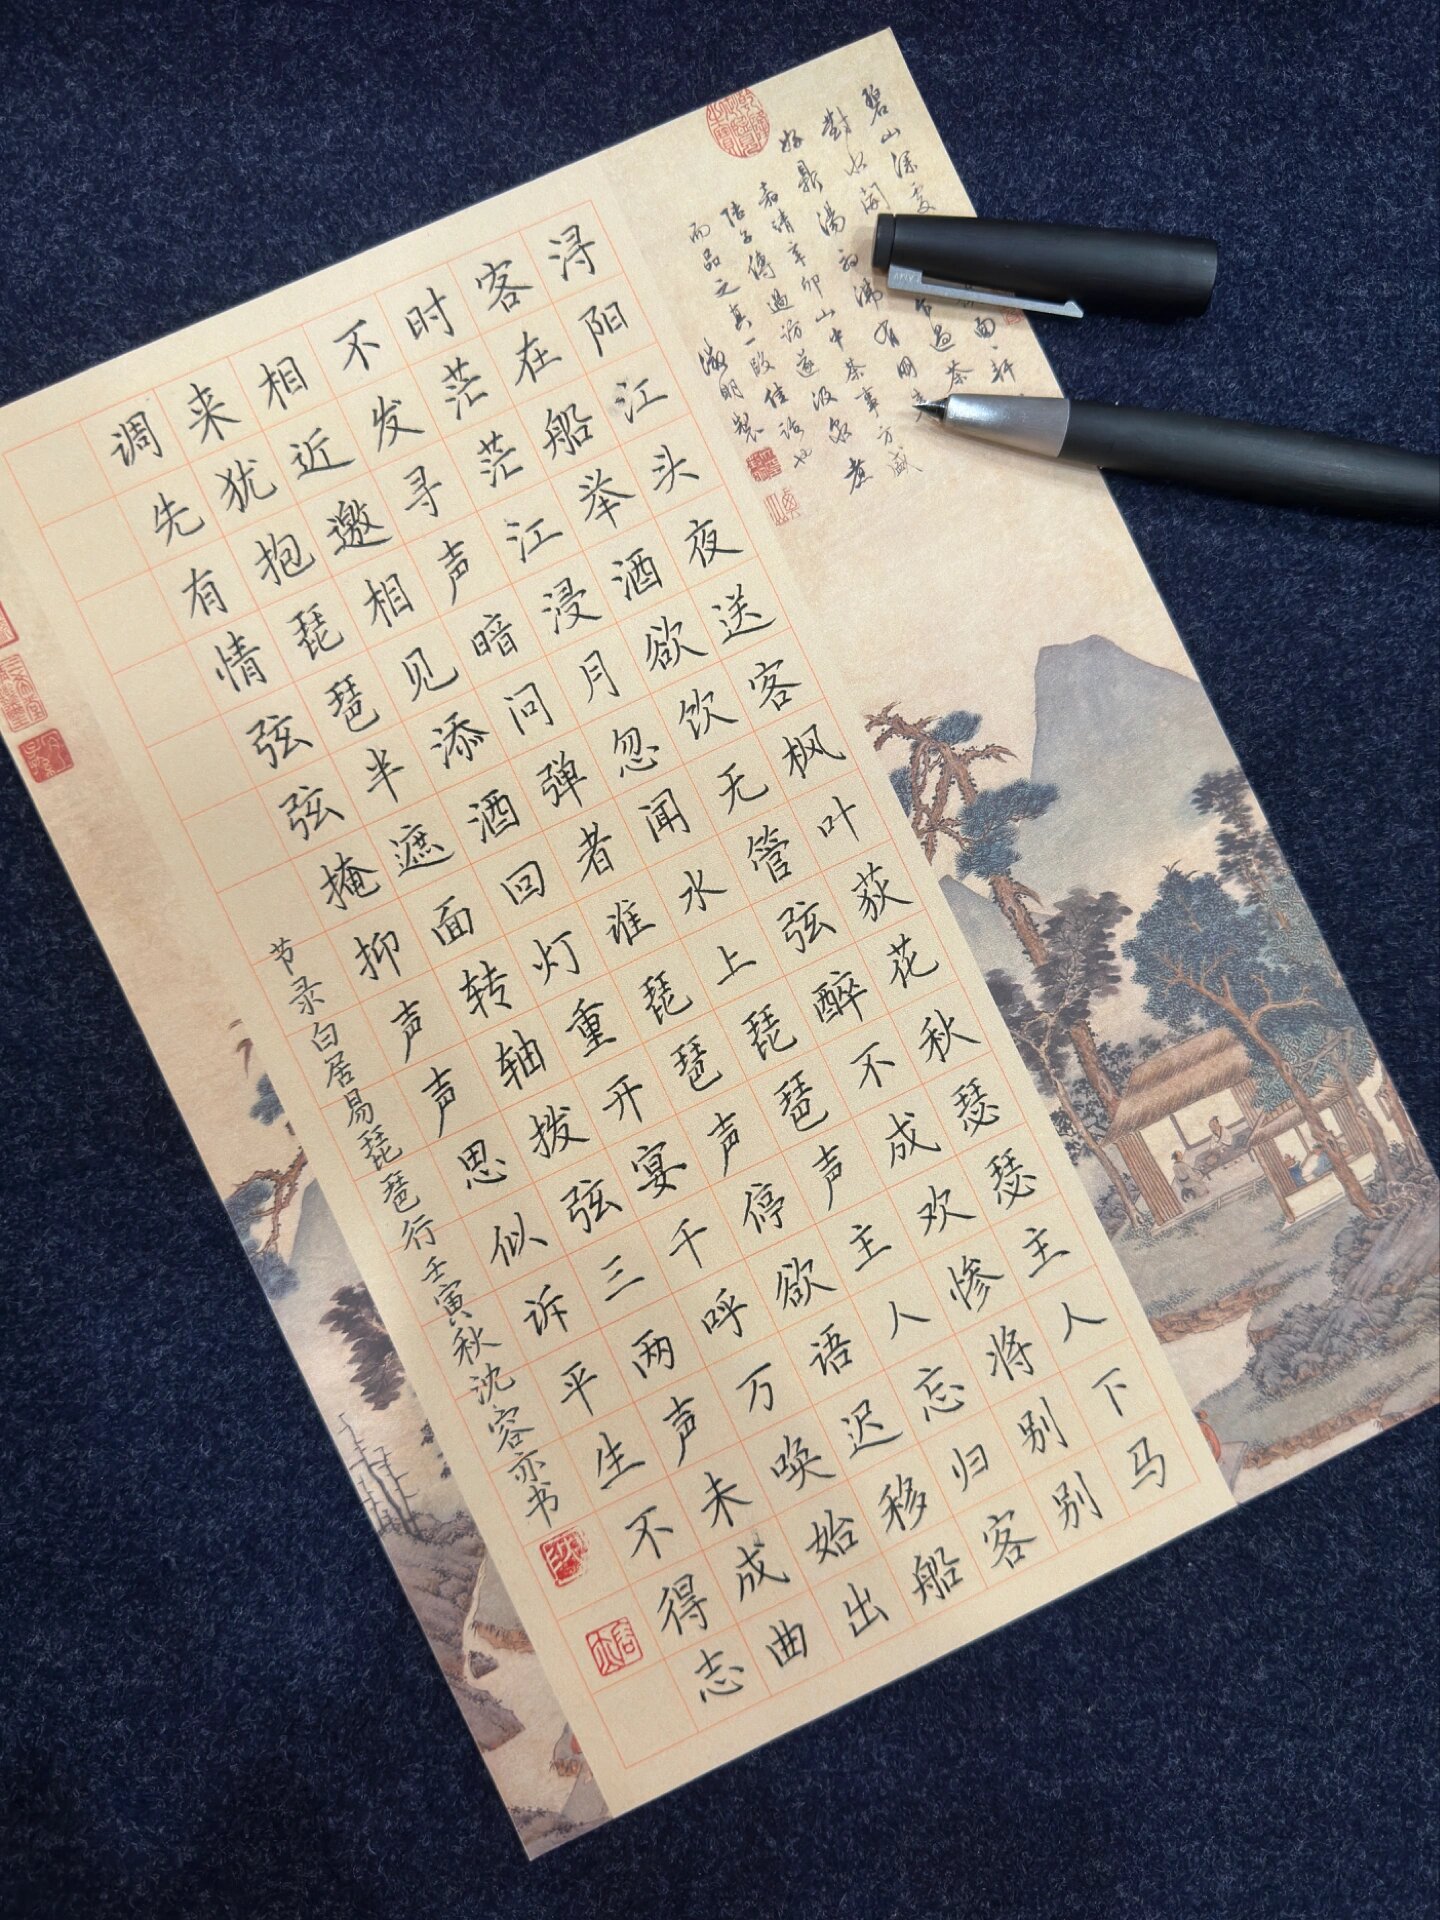 碧山深處
面軒
對水開
乍過茶
好鼎湯初沸有朋
嘉靖辛卯山中茶事方盛
陸子傳過訪遂汲泉煮
而品之真一段佳話也
徵明製
浔阳江头夜送客枫叶荻花秋瑟瑟主人下马
客在船举酒欲饮无管弦醉不成欢惨将别别
时茫茫江浸月忽闻水上琵琶声主人忘归客
不发寻声暗问弹者谁琵琶声停欲语迟移船
相近邀相见添酒回灯重开宴千呼万唤始出
来犹抱琵琶半遮面转轴拨弦三两声未成曲
调先有情弦弦掩抑声声思似诉平生不得志
节录白居易琵琶行壬寅秋沈容亦书